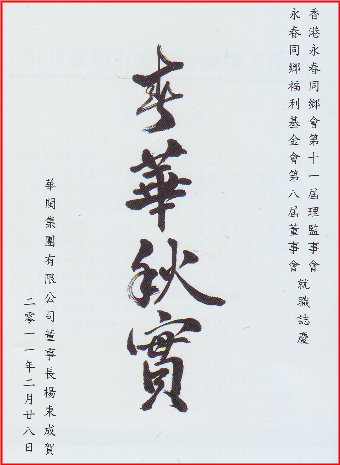 香港永春同鄉會第十一屆理監事會
永春同鄉福利基金會第八屆董事會
就職誌慶
春華秋實
華閩集團有限公司董事長楊東成賀
二零一一年二月廿八日